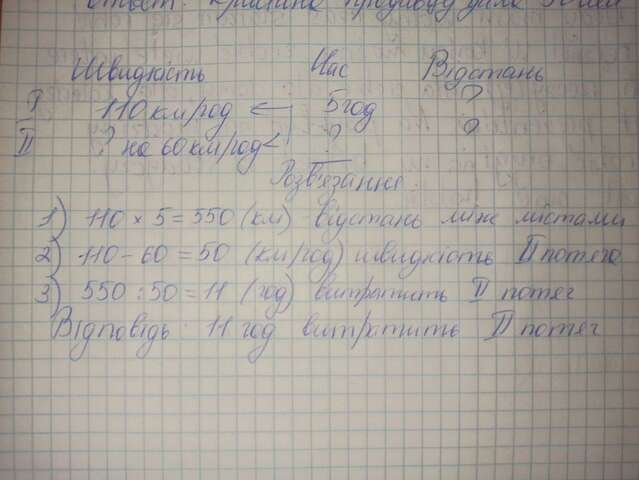 Ответ: Крашина продиводу дала 50 лет
Швидкість Час Відстань
I 110 км/год 5 год ?
II ? на 60 км/год < ? ?
Розв'язання
1) 110 × 5 = 550 (км) відстань між містами
2) 110 - 60 = 50 (км/год) швидкість II потяга
3) 550 : 50 = 11 (год) витратить II потяг
Відповідь: 11 год витратить II потяг